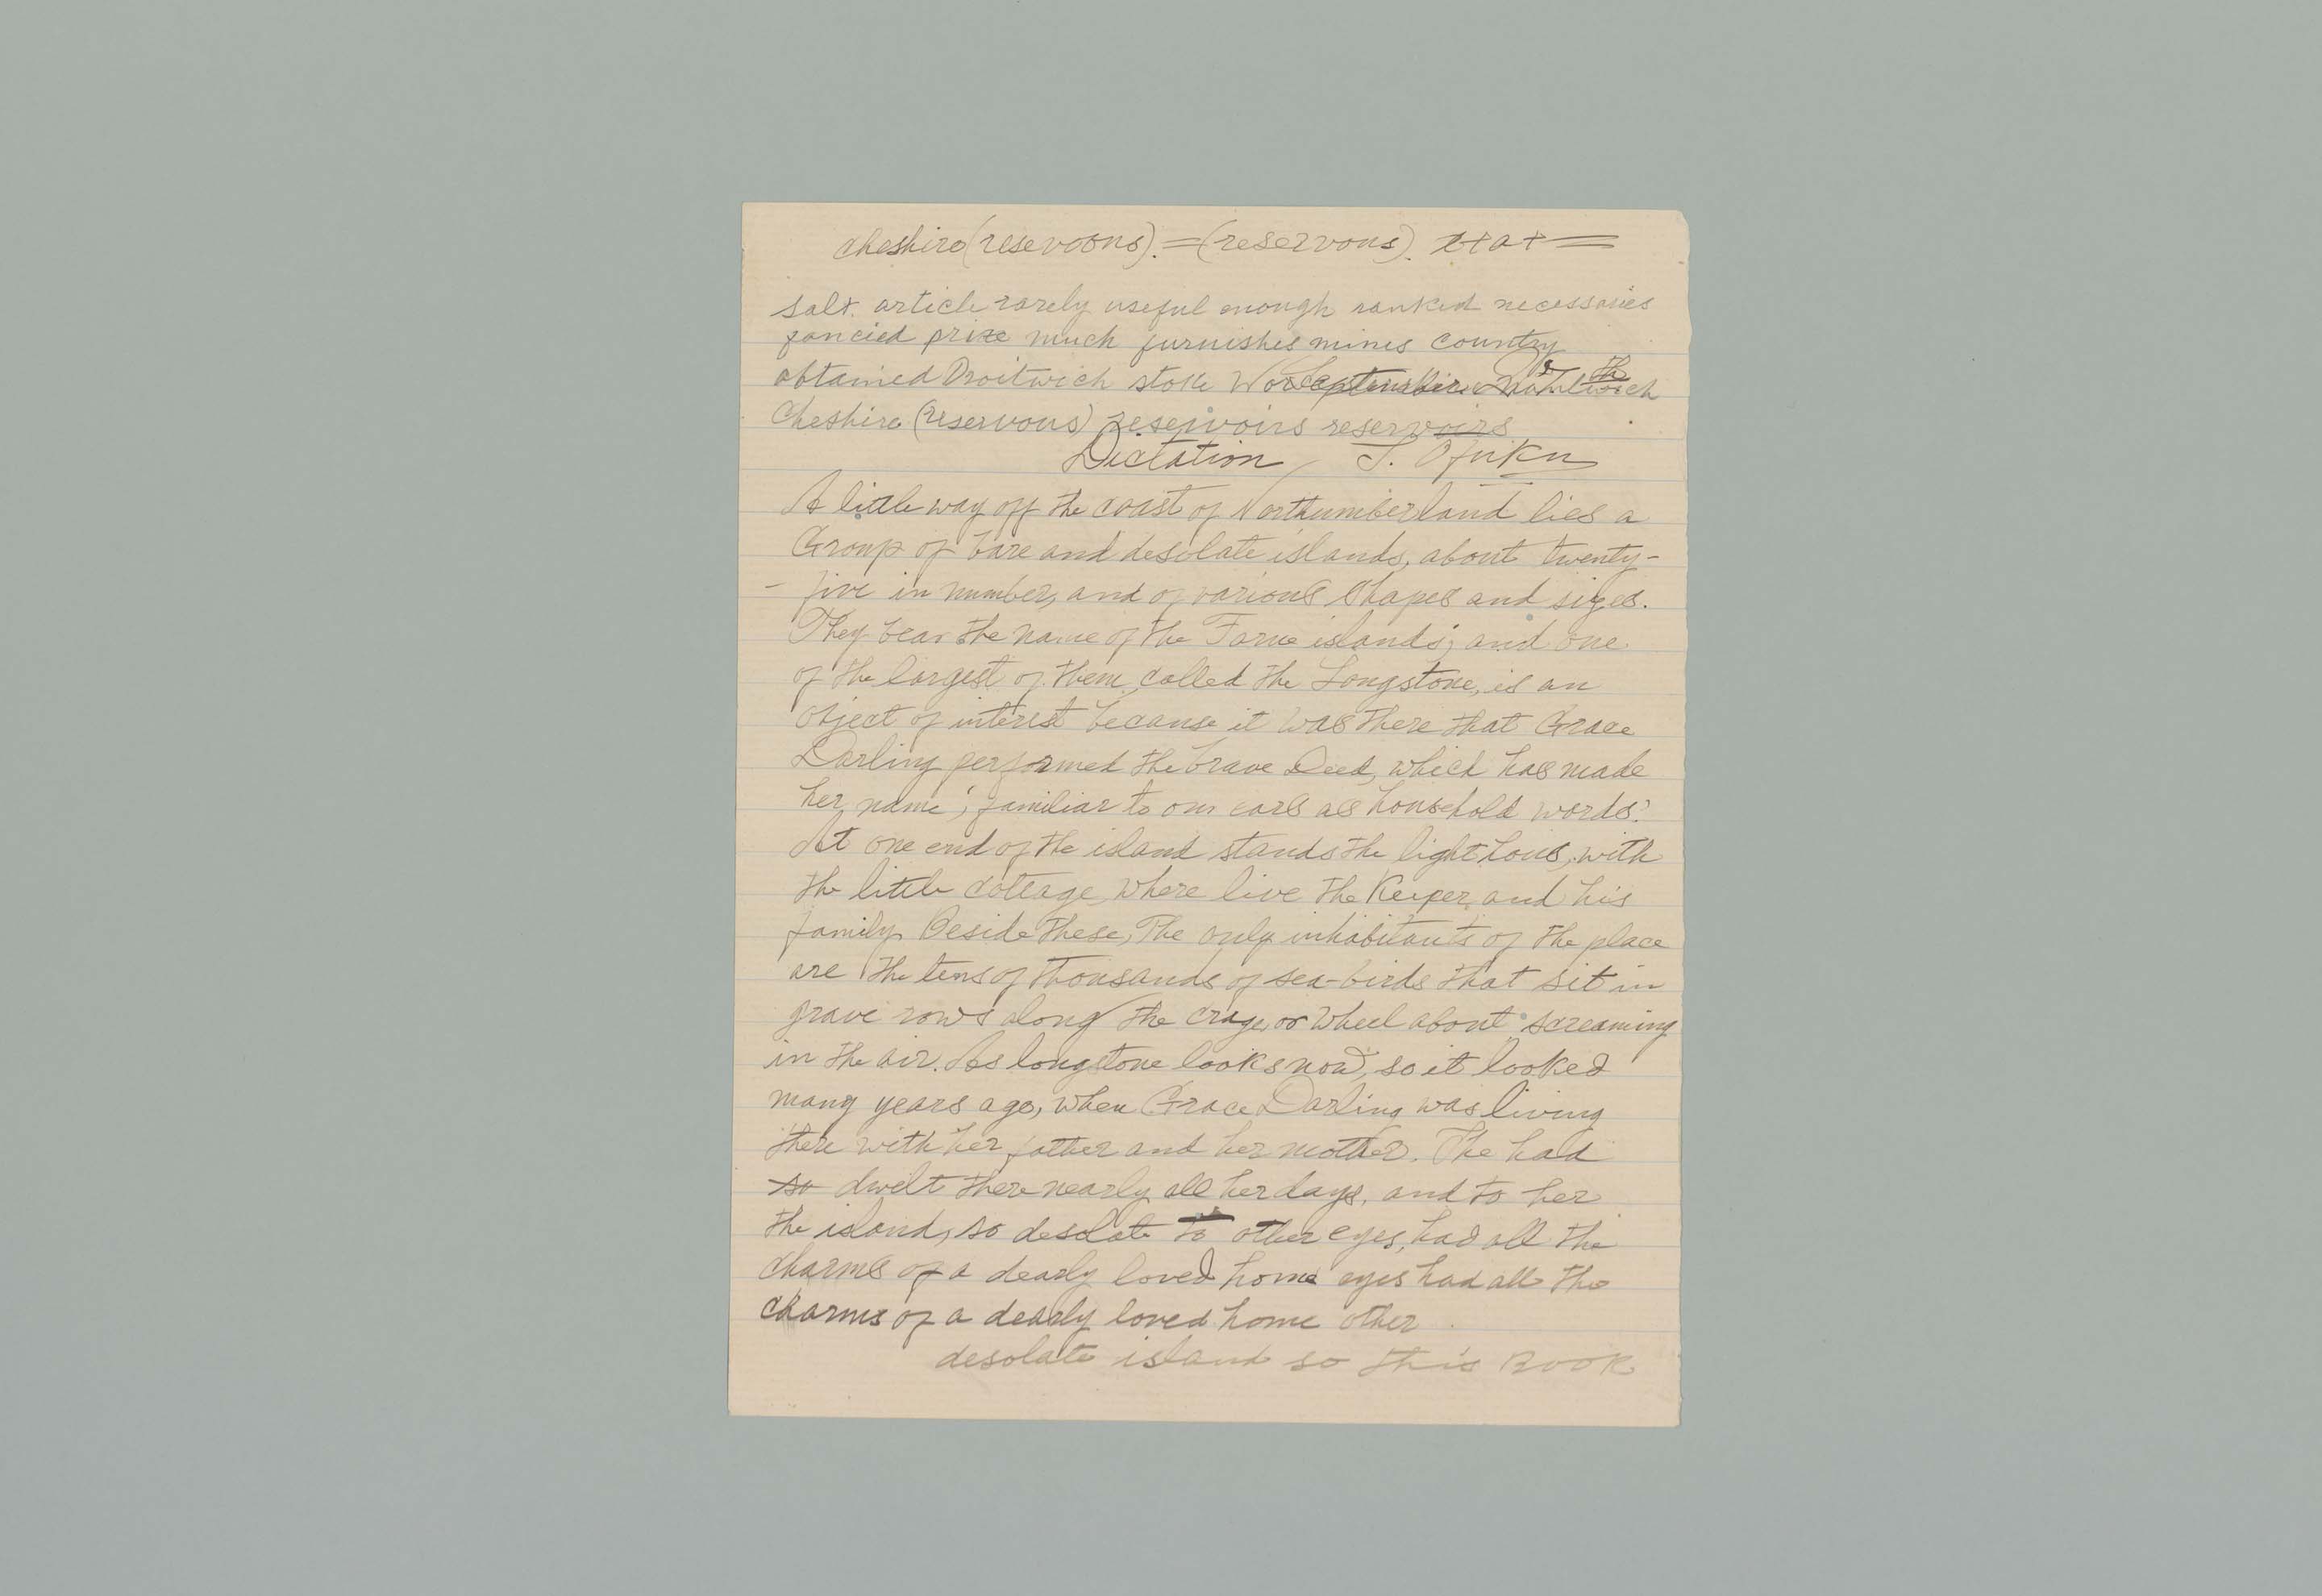 Cheshire (resevoons). = (reservous).
salt. article rarely useful enough ranked necessaries
fancied prize much furnishes mines country
obtained Droitwich stoke
Cheshire (reservous) resejvoirs reservoirs
Dictation
A little way off the coast of Northumberland lies a
Group of bare and desolate islands, about twenty-
- five in number, and of various shapes and sizes.
They bear the name of the Farne islands; and one
of the largest of them, called the Longstone, is an
object of interest because it was there that Grace
Darling performed the brave Deed, which has made
her name, familiar to our ears as household words.
At one end of the island stands the light hous, with
the little cottage where live the Keeper, and his
family. Beside these, The only inhabitants of the place
are the tens of thousands of sea-birds that sit in
grave rows along the crags, or wheel about screaming
in the air. As longstone looks now, so it looked
many years ago, when Grace Darling was living
there with her father and her mother. The had
so dwelt there nearly all her days, and to her
the island, so desolate to other eyes, had all the
charms of a dearly loved home eyes had all the
charms of a dearly loved home other
desolate island so this Book